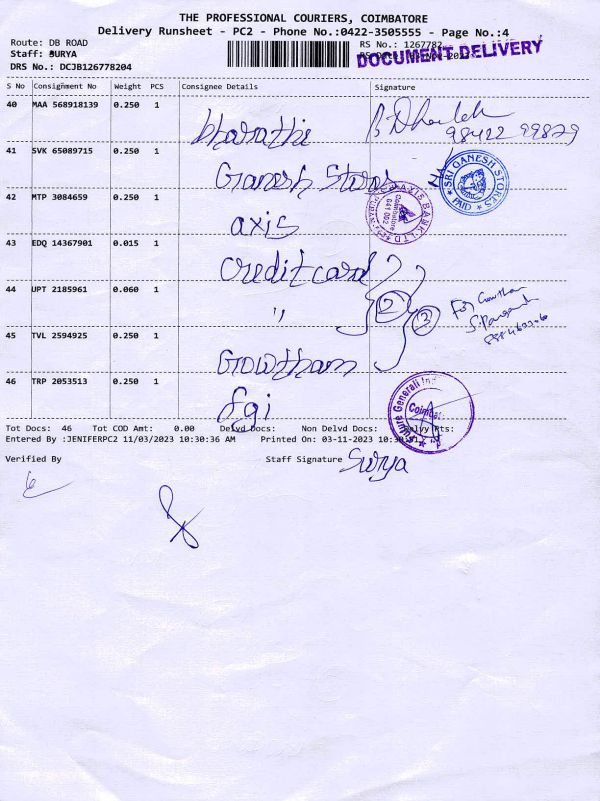 THE PROFESSIONAL COURIERS, COIMBATORE
Delivery Runsheet - PC2 - Phone No.:0422-3505555 - Page No.:4
Route: DB ROAD
RS No.: 1267782
Staff: SURYA
DOCUMENT DELIVERY
DRS No.: DCJB126778204
S No Consignment No Weight PCS Consignee Details Signature
40 MAA 568918139 0.250 1 bharathi
98422 99829
41 SVK 65089715 0.250 1 Ganesh Stores
SRI GANESH STORES
42 MTP 3084659 0.250 1 axis
AXIS BANK LTD
Coimbatore
641 002
43 EDQ 14367901 0.015 1 credit card
44 UPT 2185961 0.060 1 "
2 3
For Gowtham
45 TVL 2594925 0.250 1 Gowtham
46 TRP 2053513 0.250 1 fgi
Future Generali Ind
Coimbat
Tot Docs: 46 Tot COD Amt: 0.00 Delvd Docs: Non Delvd Docs: Delvy Pts:
Entered By :JENIFERPC2 11/03/2023 10:30:36 AM Printed On: 03-11-2023 10:30:
Verified By Staff Signature Surya